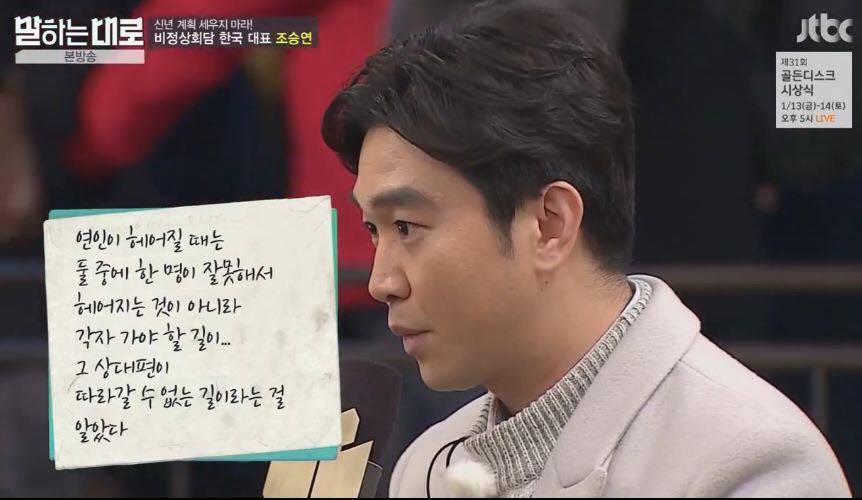 말하는대로
본방송
신년 계획 세우지 마라!
비정상회담 한국 대표 조승연
jtbc
제31회
골든디스크
시상식
1/13(금)-14(토)
오후 5시 LIVE
연인이 헤어질 때는
둘 중에 한 명이 잘못해서
헤어지는 것이 아니라
각자 가야 할 길이...
그 상대편이
따라갈 수 없는 길이라는 걸
알았다